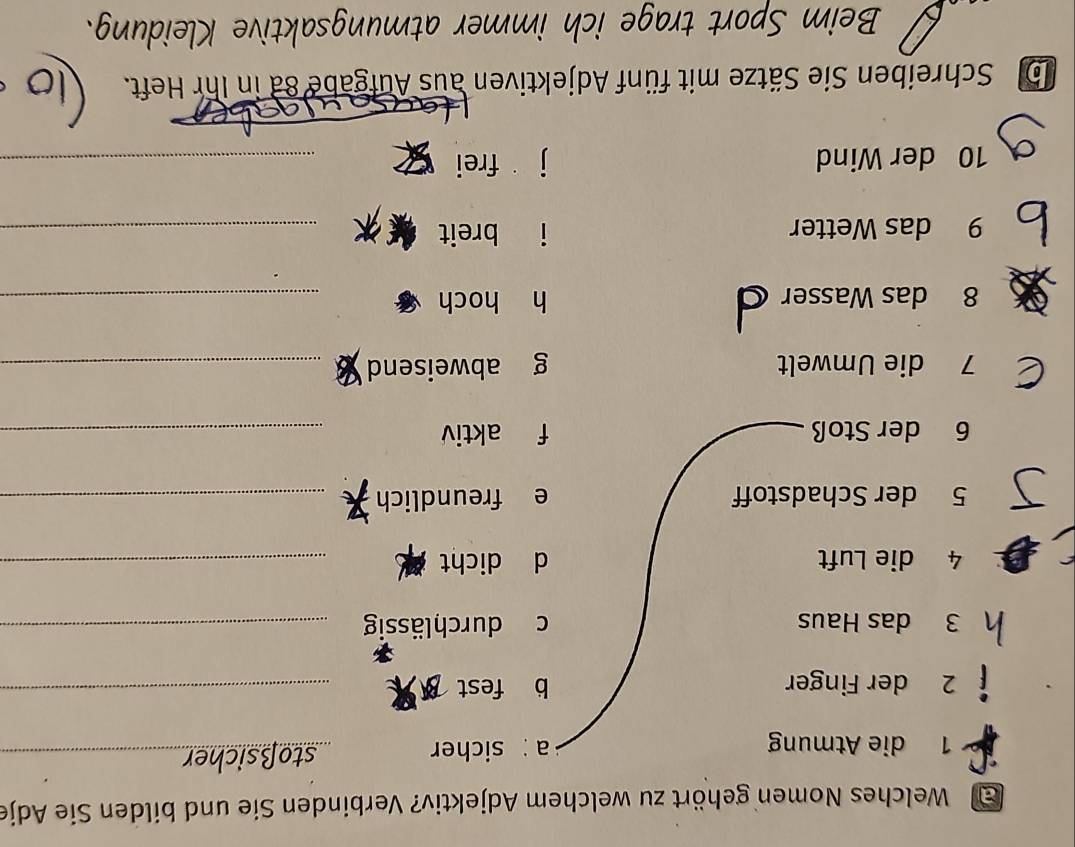 a Welches Nomen gehört zu welchem Adjektiv? Verbinden Sie und bilden Sie Adje
1 die Atmung a sicher stoßsicher
i 2 der Finger b fest
h 3 das Haus c durchlässig
4 die Luft d dicht
J 5 der Schadstoff e freundlich
6 der Stoß f aktiv
e 7 die Umwelt g abweisend
8 das Wasser d h hoch
b 9 das Wetter i breit
g 10 der Wind j frei
Hausaufgaben
b Schreiben Sie Sätze mit fünf Adjektiven aus Aufgabe 8a in Ihr Heft. (10
Beim Sport trage ich immer atmungsaktive Kleidung.